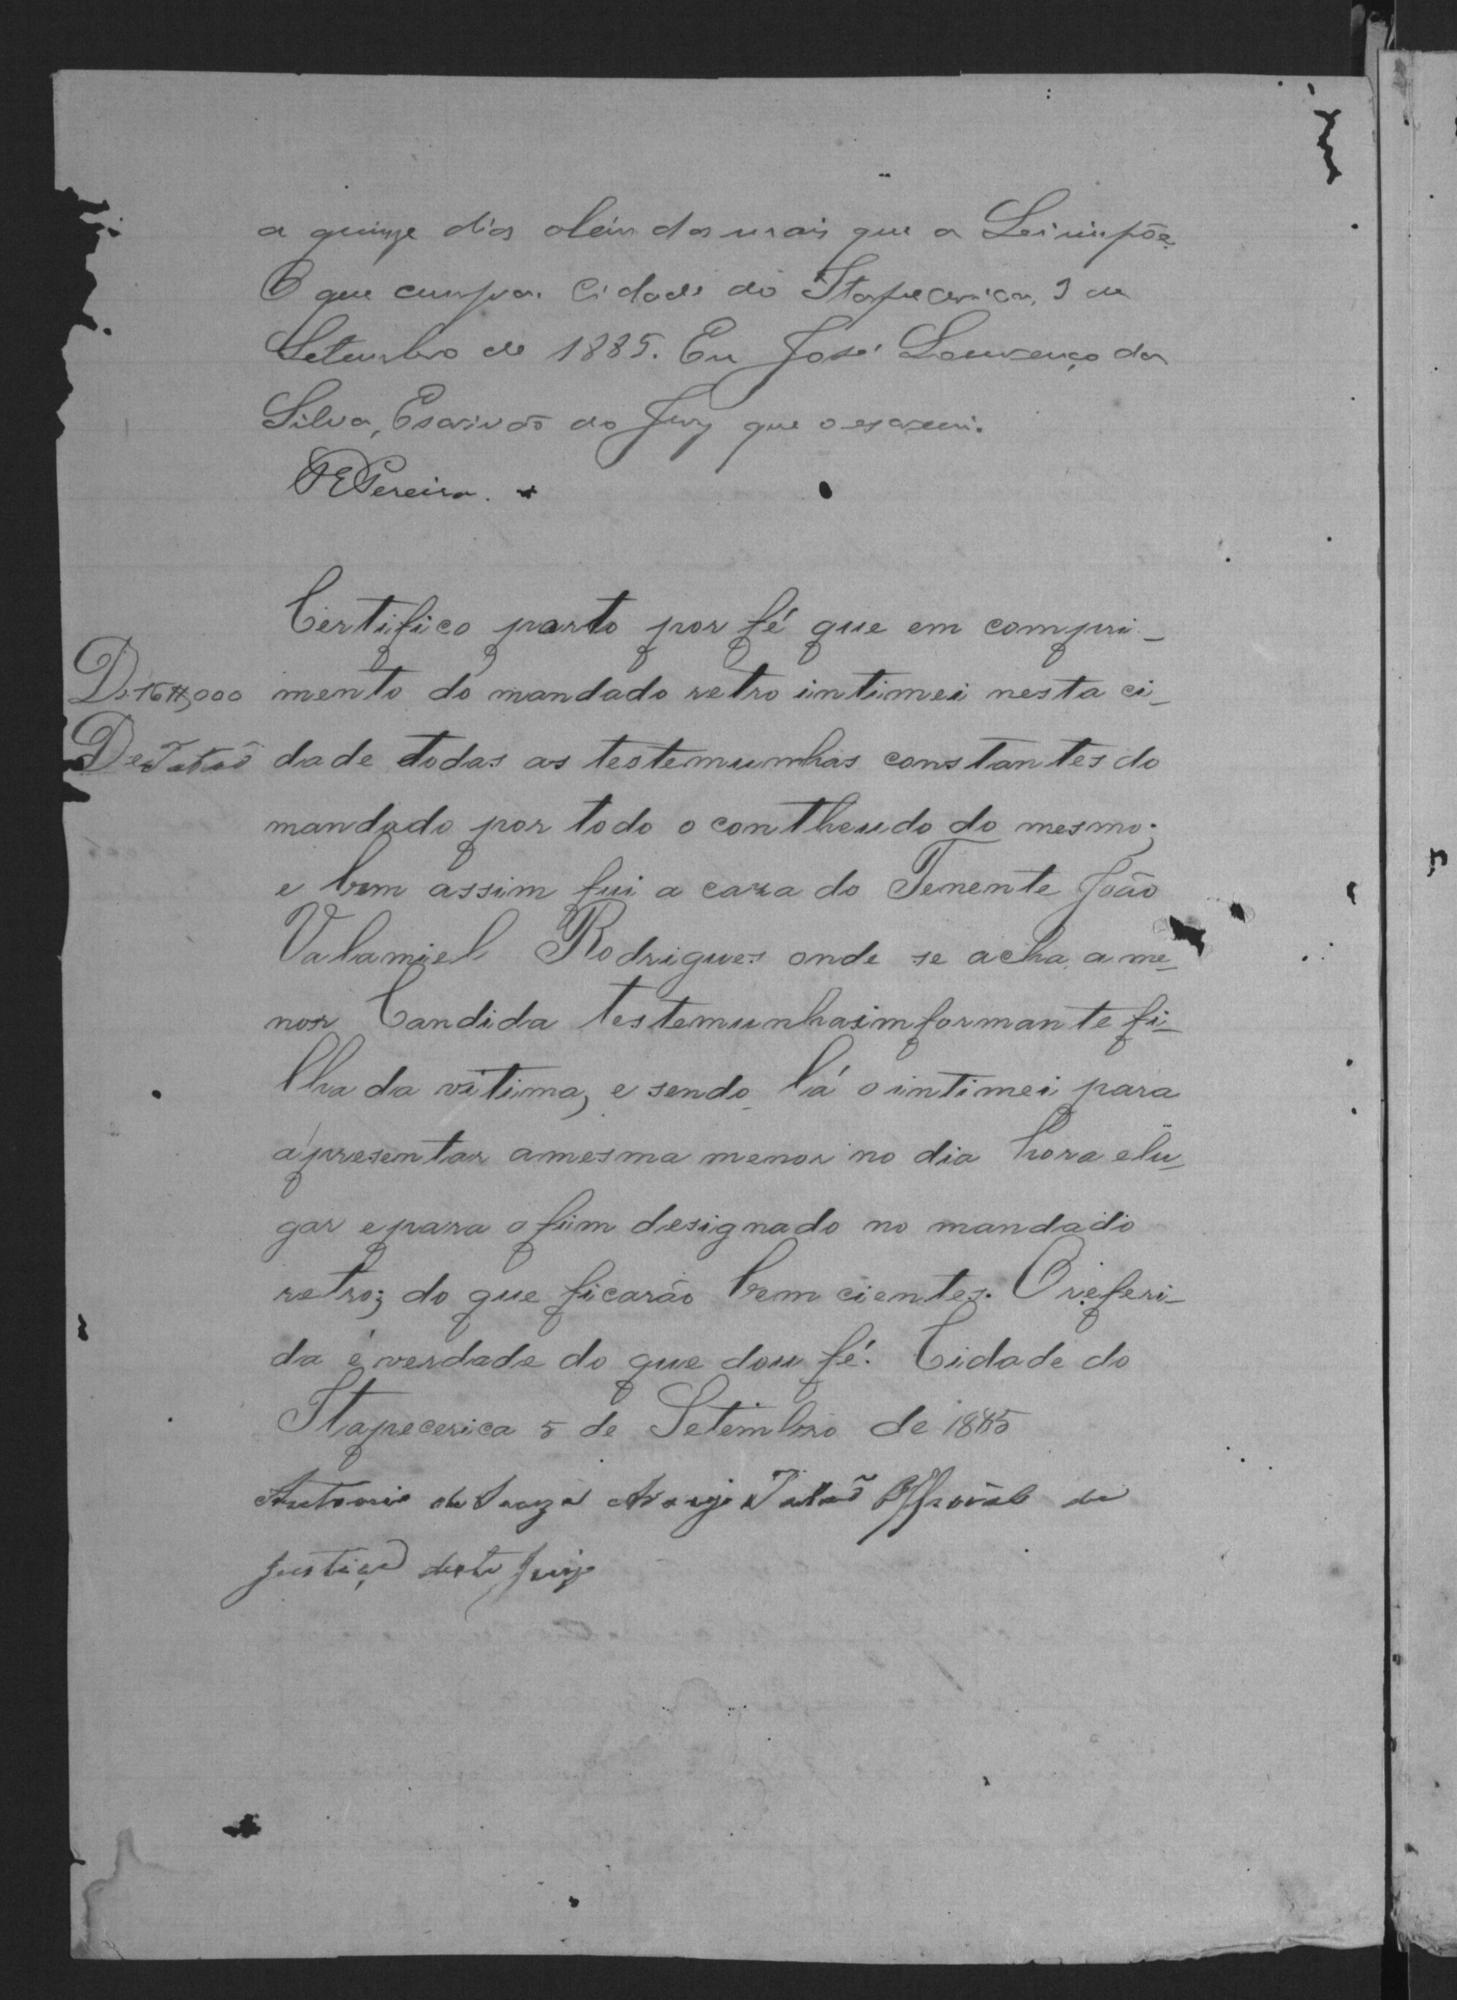 a quinze dias alem das mais que a Lei impõe.
O que cumpra. Cidade do Itapecerica, 3 de
Setembro de 1885. Eu José Lourenço da
Silva, Escrivão do Jury que o escrevi.
Pereira.
Certifico porto por fé que em compri-
D. 16#000 mento do mandado retro intimei nesta ci-
De Tatão dade todas as testemunhas constantes do
mandado por todo o contheudo do mesmo;
e bem assim fui a caza do Tenente João
Valamiel Rodrigues onde se acha a me-
nor Candida testemunhasimformante fi-
lha da vitima, e sendo lá o intimei para
apresentar amesma menor no dia hora elu-
gar epara o fim designado no mandado
retro; do que ficarão bem cientes. O referi-
da é verdade do que dou fé. Cidade do
Itapecerica 5 de Setembro de 1885
Antonio de Souza Araujo Tatão Official de
Justiça deste Juizo